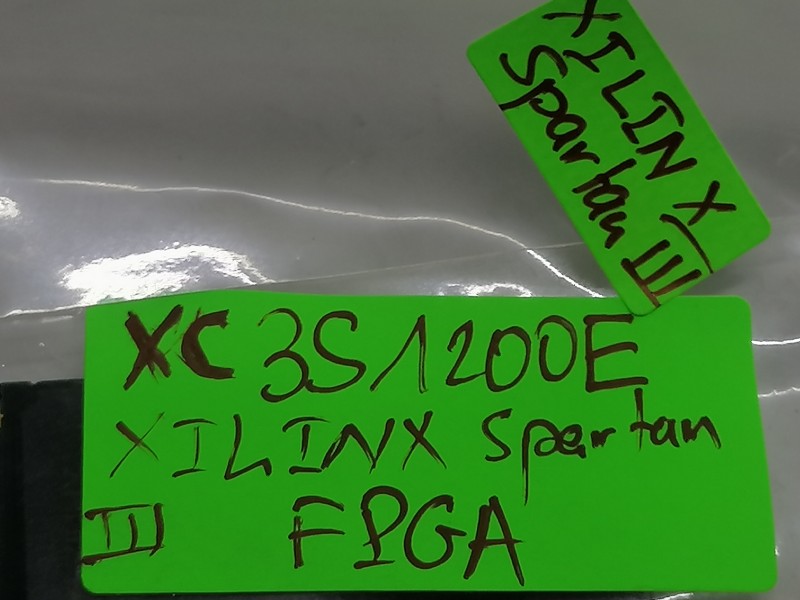 XILINX
Spartan III
XC3S1200E
XILINX Spartan
III FPGA